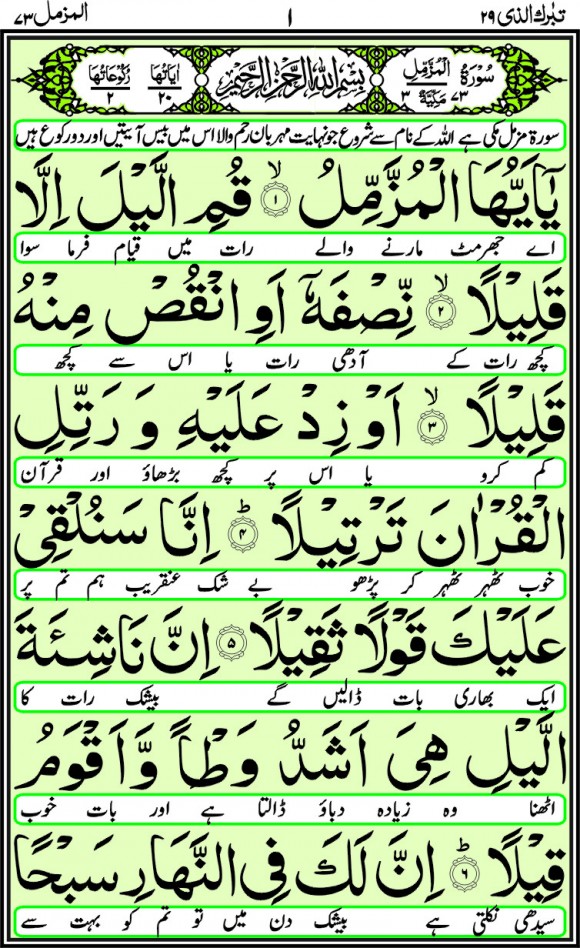 تبٰرك الذی ۲۹ ۱ المزمل ۷۳
سُوْرَةُ الْمُزَّمِّلِ مَكِّيَّةٌ ۷۳ ۳ بِسْمِ اللّٰهِ الرَّحْمٰنِ الرَّحِيْمِ اٰيَاتُهَا ۲۰ رُكُوْعَاتُهَا ۲
سورۃ مزمل مکی ہے اللہ کے نام سے شروع جو نہایت مہربان رحم والا اس میں بیس آیتیں اور دو رکوع ہیں
يٰۤاَيُّهَا الْمُزَّمِّلُ ۙ‏﴿۱﴾ قُمِ الَّيْلَ اِلَّا
اے جھرمٹ مارنے والے رات میں قیام فرما سوا
قَلِيْلًا ۙ‏﴿۲﴾ نِّصْفَهٗۤ اَوِ انْقُصْ مِنْهُ
کچھ رات کے آدھی رات یا اس سے کچھ
قَلِيْلًا ۙ‏﴿۳﴾ اَوْ زِدْ عَلَيْهِ وَ رَتِّلِ
کم کرو یا اس پر کچھ بڑھاؤ اور قرآن
الْقُرْاٰنَ تَرْتِيْلًا ؕ‏﴿۴﴾ اِنَّا سَنُلْقِيْ
خوب ٹھہر ٹھہر کر پڑھو بے شک عنقریب ہم تم پر
عَلَيْكَ قَوْلًا ثَقِيْلًا ﴿۵﴾ اِنَّ نَاشِئَةَ
ایک بھاری بات ڈالیں گے بیشک رات کا
الَّيْلِ هِيَ اَشَدُّ وَطْاً وَّ اَقْوَمُ
اٹھنا وہ زیادہ دباؤ ڈالتا ہے اور بات خوب
قِيْلًا ؕ‏﴿۶﴾ اِنَّ لَكَ فِي النَّهَارِ سَبْحًا
سیدھی نکلتی ہے بیشک دن میں تو تم کو بہت سے